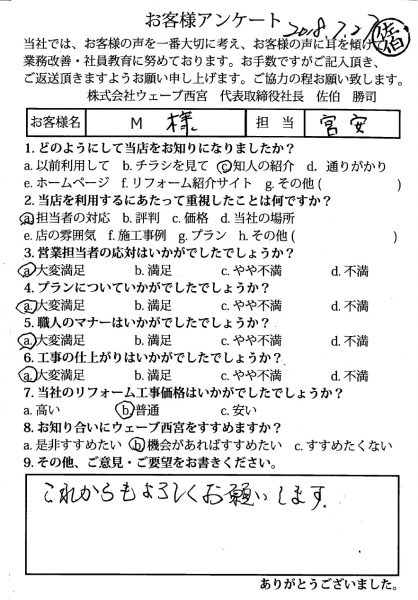 お客様アンケート 2018.7.27 佐伯
当社では、お客様の声を一番大切に考え、お客様の声に耳を傾けて
業務改善・社員教育に努めております。お手数ですがご記入頂き、
ご返送頂きますようお願い申し上げます。ご協力の程お願い致します。
株式会社ウェーブ西宮 代表取締役社長 佐伯 勝司
お客様名 M 様 担当 宮安
1. どのようにして当店をお知りになりましたか?
a. 以前利用して b. チラシを見て c. 知人の紹介 d. 通りがかり
e. ホームページ f. リフォーム紹介サイト g. その他 ( )
2. 当店を利用するにあたって重視したことは何ですか?
a. 担当者の対応 b. 評判 c. 価格 d. 当社の場所
e. 店の雰囲気 f. 施工事例 g. プラン h. その他 ( )
3. 営業担当者の応対はいかがでしたでしょうか?
a. 大変満足 b. 満足 c. やや不満 d. 不満
4. プランについていかがでしたでしょうか?
a. 大変満足 b. 満足 c. やや不満 d. 不満
5. 職人のマナーはいかがでしたでしょうか?
a. 大変満足 b. 満足 c. やや不満 d. 不満
6. 工事の仕上がりはいかがでしたでしょうか?
a. 大変満足 b. 満足 c. やや不満 d. 不満
7. 当社のリフォーム工事価格はいかがでしたでしょうか?
a. 高い b. 普通 c. 安い
8. お知り合いにウェーブ西宮をすすめますか?
a. 是非すすめたい b. 機会があればすすめたい c. すすめたくない
9. その他、ご意見・ご要望をお書きください。
これからもよろしくお願いします.
ありがとうございました。